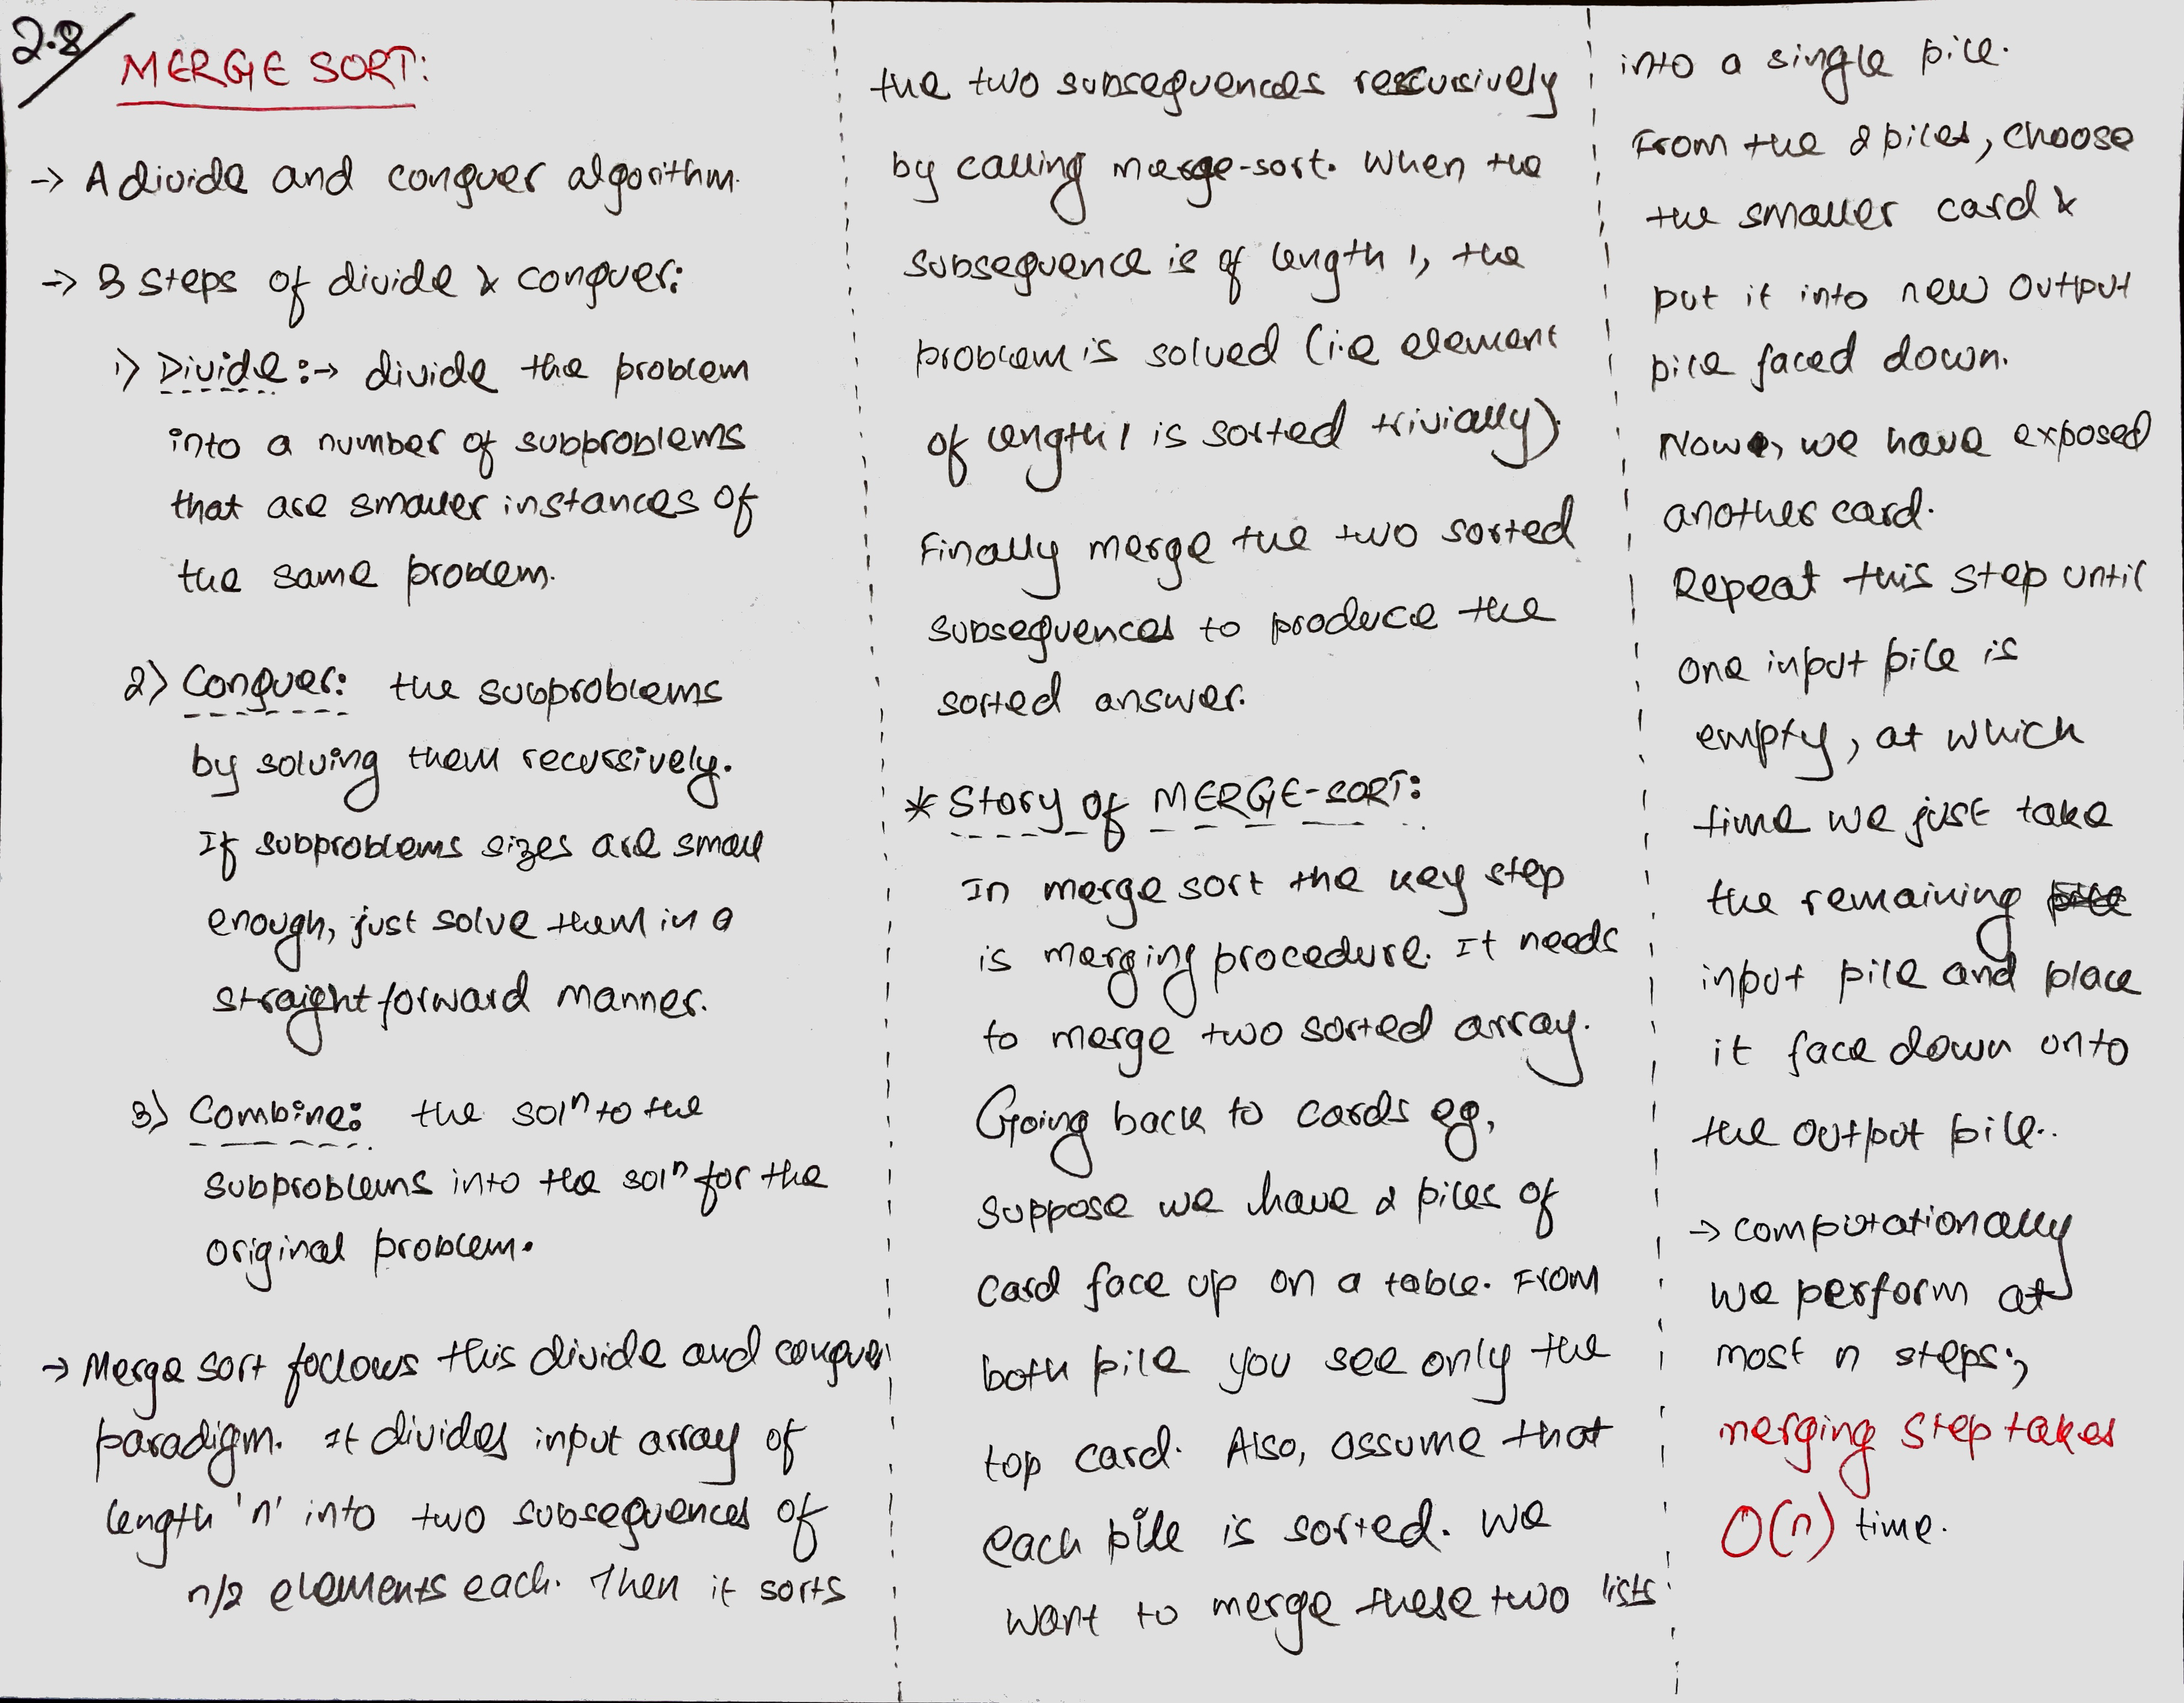 2.8/
MERGE SORT:
→ A divide and conquer algorithm.
→ 3 steps of divide & conquer:
1) Divide :→ divide the problem
into a number of subproblems
that are smaller instances of
the same problem.
2) Conquer: the subproblems
by solving them recursively.
If subproblems sizes are small
enough, just solve them in a
straight forward manner.
3) Combine: the solⁿ to the
subproblems into the solⁿ for the
original problem.
→ Merge sort follows this divide and conquer
paradigm. It divides input array of
length 'n' into two subsequences of
n/2 elements each. Then it sorts
the two subsequences recursively
by calling merge-sort. When the
subsequence is of length 1, the
problem is solved (i.e element
of length 1 is sorted trivially).
Finally merge the two sorted
subsequences to produce the
sorted answer.
* Story of MERGE-SORT:
In merge sort the key step
is merging procedure. It needs
to merge two sorted array.
Going back to cards eg,
suppose we have 2 piles of
card face up on a table. From
both pile you see only the
top card. Also, assume that
each pile is sorted. We
want to merge these two lists
into a single pile.
From the 2 piles, choose
the smaller card &
put it into new output
pile faced down.
Now, we have exposed
another card.
Repeat this step until
one input pile is
empty, at which
time we just take
the remaining
input pile and place
it face down onto
the output pile..
→ computationally
we perform at
most n steps;
merging step takes
O(n) time.